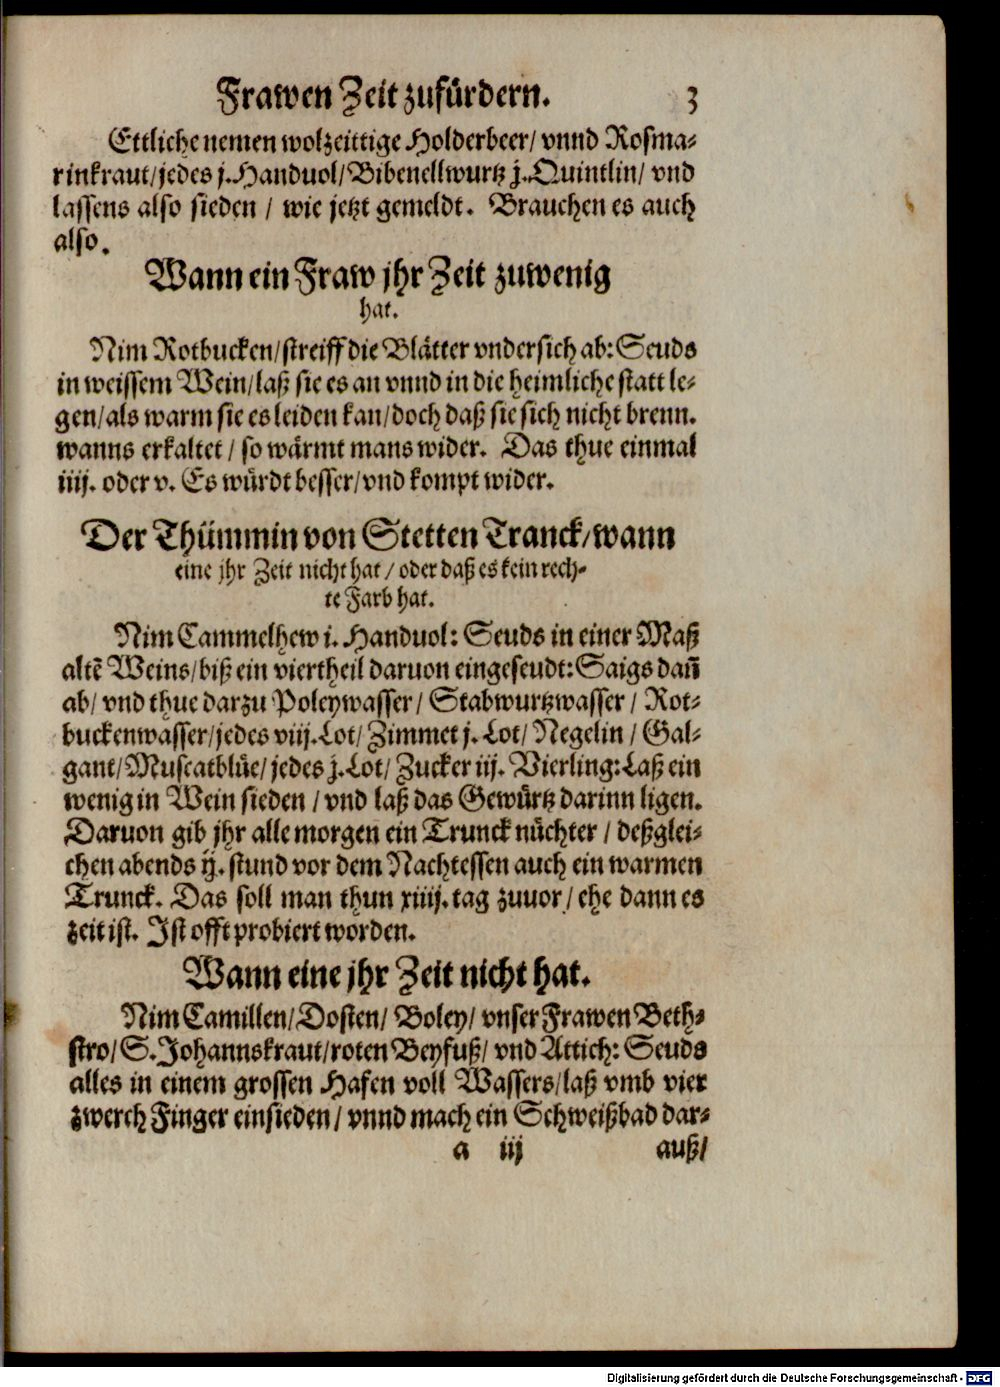 Frawen Zeit zufürdern. 3
Ettliche nemen wolzeittige Holderbeer/ vnnd Rosma-
rinkraut/jedes j.Handuol/Bibenellwurtz j.Quintlin/ vnd
lassens also sieden / wie jetzt gemeldt. Brauchen es auch
also.
Wann ein Fraw jhr Zeit zuwenig
hat.
Nim Rotbucken/streiff die Blätter vndersich ab: Seuds
in weissem Wein/laß sie es an vnnd in die heimliche statt le-
gen/als warm sie es leiden kan/doch daß sie sich nicht brenn.
wanns erkaltet / so wärmt mans wider. Das thue einmal
iiij. oder v. Es würdt besser/vnd kompt wider.
Der Thümmin von Stetten Tranck/wann
eine jhr Zeit nicht hat / oder daß es kein rech-
te Farb hat.
Nim Cammelhew i. Handuol: Seuds in einer Maß
altē Weins/biß ein viertheil daruon eingeseudt: Saigs dañ
ab/ vnd thue darzu Poleywasser/ Stabwurtzwasser / Rot-
buckenwasser/jedes viij.Lot/ Zimmet j. Lot/ Negelin / Gal-
gant/Muscatblüe/jedes j.Lot/ Zucker iij. Vierling: Laß ein
wenig in Wein sieden / vnd laß das Gewürtz darinn ligen.
Daruon gib jhr alle morgen ein Trunck nüchter / deßglei-
chen abends ij. stund vor dem Nachtessen auch ein warmen
Trunck. Das soll man thun xiiij. tag zuuor / ehe dann es
zeit ist. Ist offt probiert worden.
Wann eine jhr Zeit nicht hat.
Nim Camillen/Dosten/ Boley/ vnser Frawen Beth-
stro/ S. Johannskraut/roten Beyfuß/ vnd Attich: Seuds
alles in einem grossen Hafen voll Wassers/laß vmb vier
zwerch Finger einsieden / vnnd mach ein Schweißbad dar-
a iij auß/
Digitalisierung gefördert durch die Deutsche Forschungsgemeinschaft - DFG